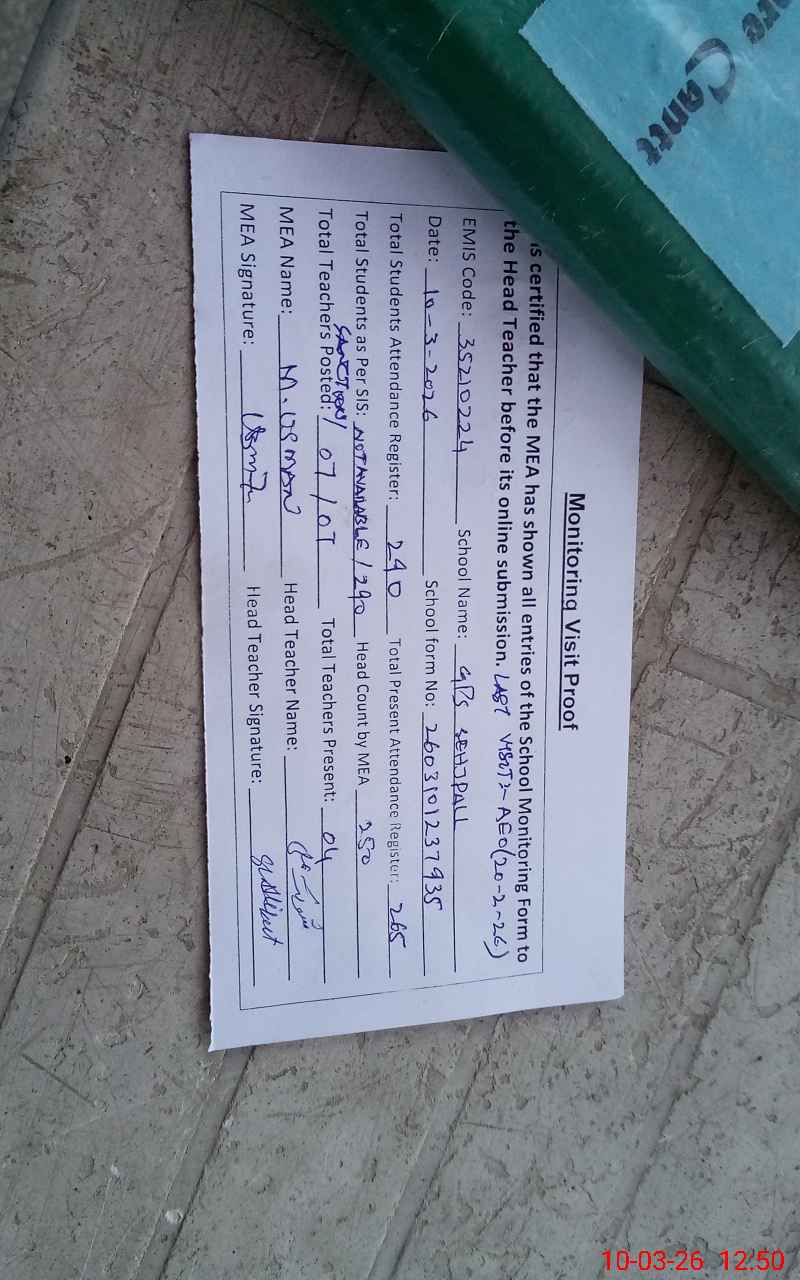 are Cantt
Monitoring Visit Proof
is certified that the MEA has shown all entries of the School Monitoring Form to
the Head Teacher before its online submission. LAST VISIT :- AEO (20-2-26)
EMIS Code: 35210224 School Name: GPS SEHJPALL
Date: 10-3-2026 School form No: 2603101237935
Total Students Attendance Register: 290 Total Present Attendance Register: 265
Total Students as Per SIS: NOT AVAILABLE / 290 Head Count by MEA 250
SANCTION /
Total Teachers Posted: 07 / 07 Total Teachers Present: 04
MEA Name: M. USMAN Head Teacher Name:
MEA Signature: Head Teacher Signature:
10-03-26 12:50